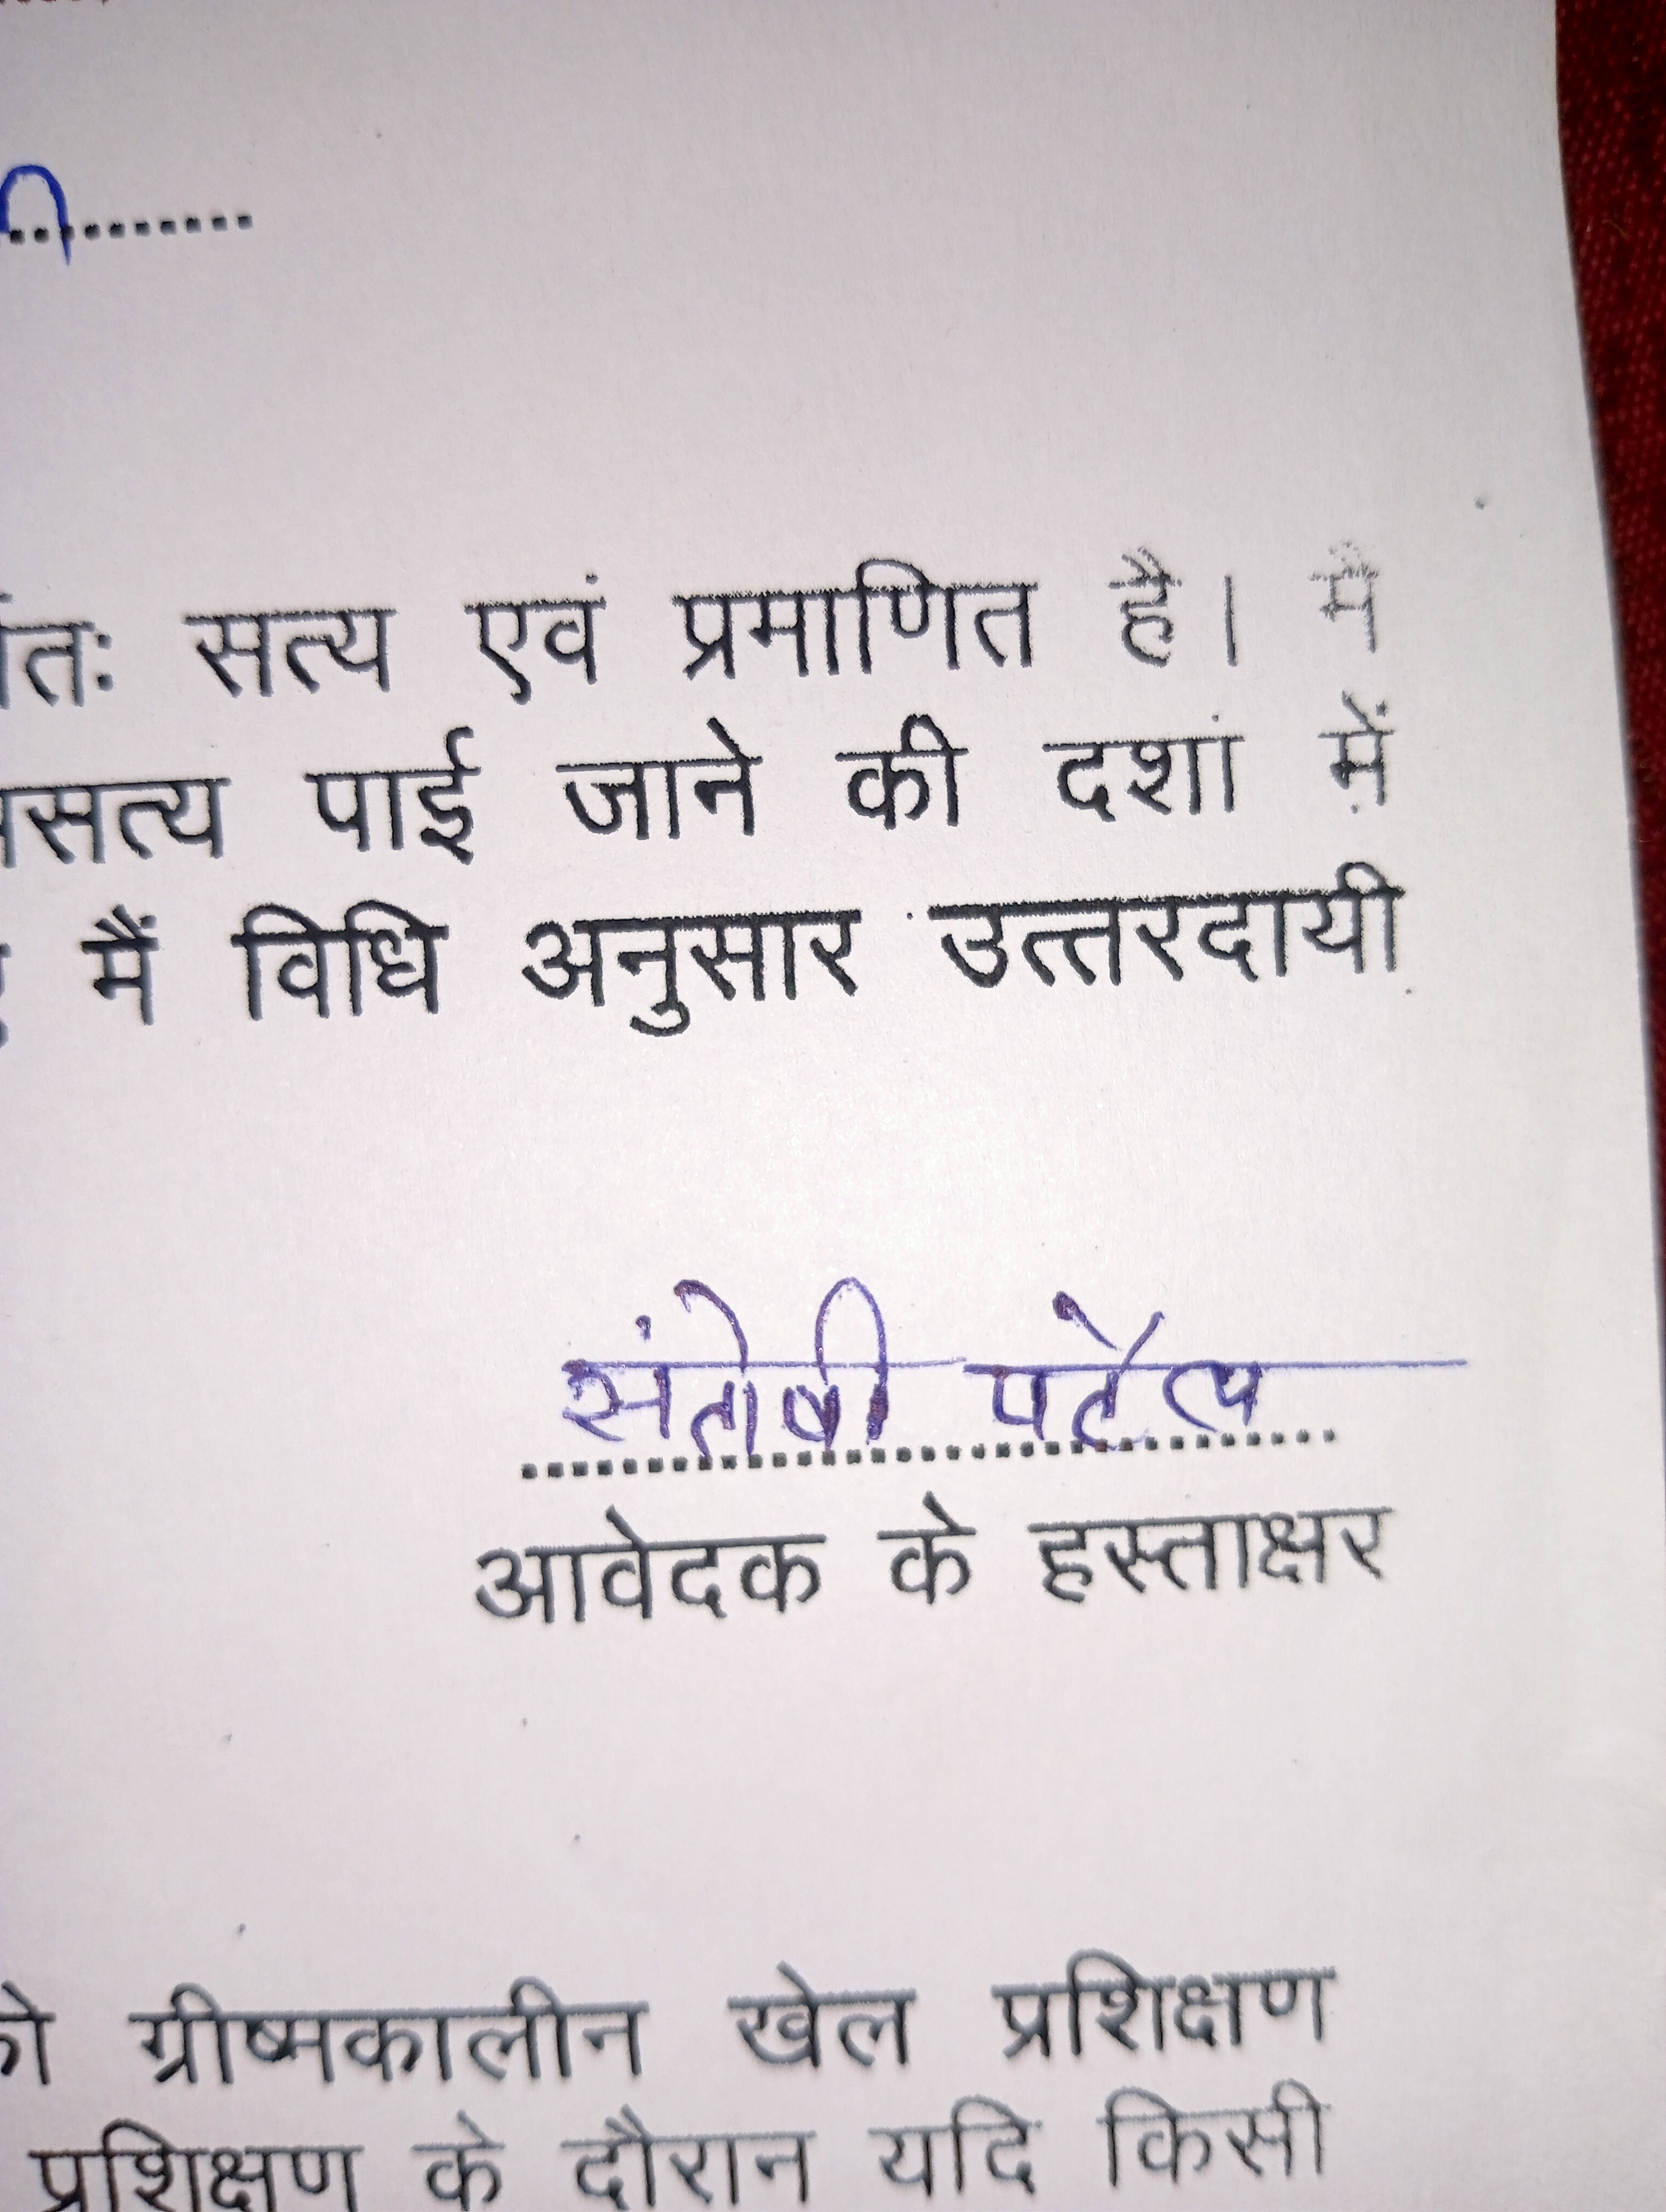 सत्य एवं प्रमाणित है। मैं
पाई जाने की दशा में
मैं विधि अनुसार उत्तरदायी
संतोषी पटेल
आवेदक के हस्ताक्षर
ग्रीष्मकालीन खेल प्रशिक्षण
प्रशिक्षण के दौरान यदि किसी